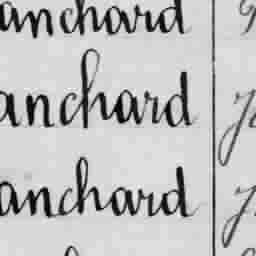 anchard
anchard
anchard